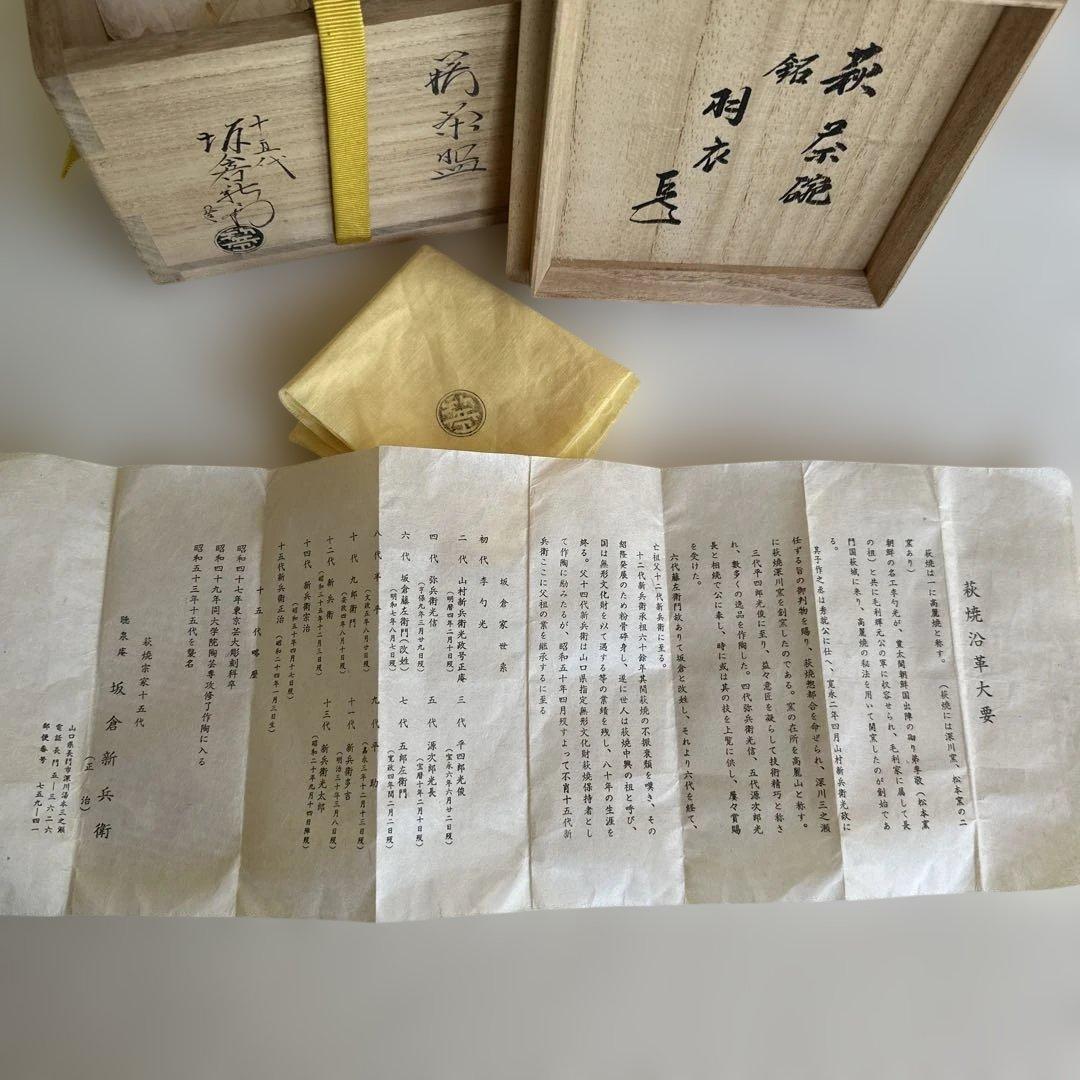 萩茶碗
十五代
坂倉新兵衛
萩茶碗
銘
羽衣
萩焼沿革大要
萩焼は一に高麗焼と称す。(萩焼には深川窯、松本窯の二
窯あり)
朝鮮の名工李勺光が、豊太閤朝鮮国出陣の砌り弟李敬(松本窯
の祖)と共に毛利輝元公の軍に収容せられ、毛利家に属して長
門国萩城に来り、高麗焼の秘法を用いて開窯したのが創始であ
る。
其子作之丞は秀就公に仕へ、寛永二年四月山村新兵衛光政に
任ずる旨の御判物を賜り、萩焼惣都合を命ぜられ、深川三之瀬
に萩焼深川窯を創窯したのである。窯の在所を高麗山と称す。
三代平四郎光俊に至り、益々意匠を凝らして技術精巧と称さ
れ、数多くの逸品を作陶した。四代弥兵衛光信、五代源次郎光
長と相続て公に奉し、時に或は其の技を上覧に供し、屡々賞賜
を受けた。
六代藤左衛門故ありて坂倉と改姓し、それより六代を経て、
亡祖父十二代新兵衛に至る。
十二代新兵衛承祖六十余年其間萩焼の不振衰頽を嘆き、その
紹隆発展のため粉骨砕身し、遂に世人は萩焼中興の祖と呼び、
国は無形文化財を以て遇する等の業績を残し、八十年の生涯を
終る。父十四代新兵衛は山口県指定無形文化財萩焼保持者とし
て作陶に励みたるが、昭和五十年四月歿すよって不肖十五代新
兵衛ここに父祖の業を継承するに至る
坂倉家世系
初代 李勺光
二代 山村新兵衛光政号正庵 三代 平四郎光俊
(明暦四年二月十日歿) (宝永六年六月廿二日歿)
四代 弥兵衛光信 五代 源次郎光長
(享保九年三月廿九日歿) (宝暦十年二月十日歿)
六代 坂倉藤左衛門(改姓) 七代 五郎左衛門
(明和七年八月七日歿) (寛政四年閏二月二日歿)
八代 九代 平助
(文政五年八月十日歿) (嘉永三年十二月十三日歿)
十代 九郎衛門 十一代 新兵衛多吉
(安政四年八月十日歿) (明治三十年三月八日歿)
十二代 新兵衛 十三代 新兵衛光太郎
(昭和三十五年十二月三日歿) (昭和二十年九月十四日陣歿)
十四代 新兵衛治
(昭和五十年四月十七日歿)
十五代新兵衛正治 (昭和二十四年一月三日生)
十五代略歴
昭和四十七年東京芸大彫刻科卒
昭和四十九年同大学院陶芸専攻修了作陶に入る
昭和五十三年十五代を襲名
萩焼宗家十五代
聴泉庵 坂倉新兵衛
(正治)
山口県長門市深川湯本三之瀬
電話長門五―三六二六
郵便番号 七五九―四一